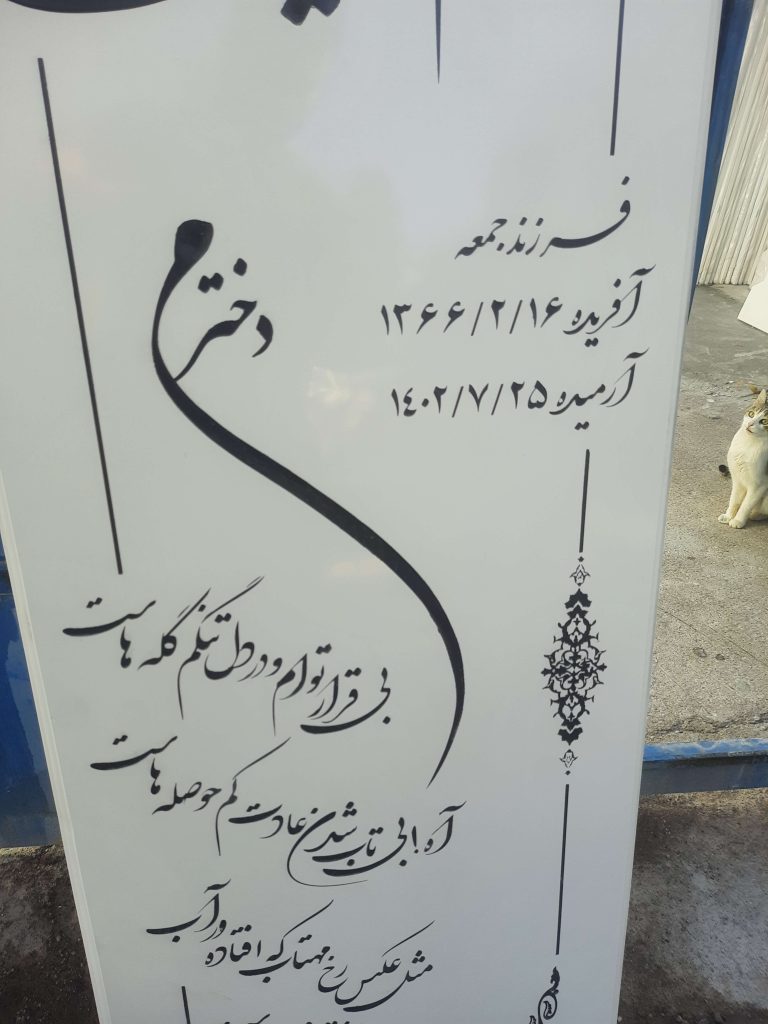 فرزند جمعه
آفریده ۱۳۶۶/۲/۱۶
آرمیده ۱۴۰۲/۷/۲۵
دخترم
بی قرار توام و در دل تنگم گله هاست
آه! بی تاب شدن عادت کم حوصله هاست
مثل عکس رخ مهتاب که افتاده در آب